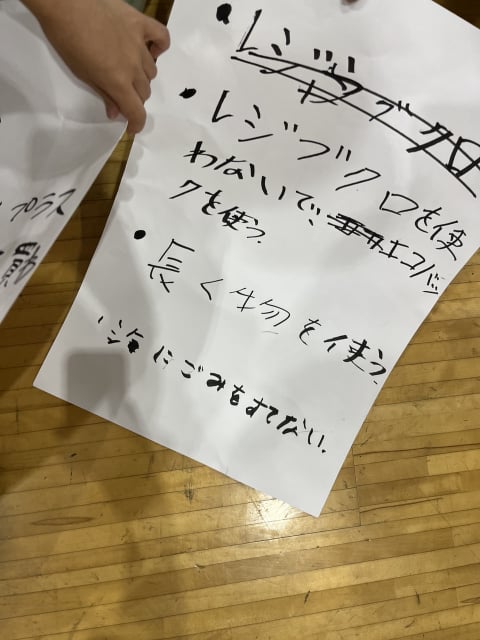 ・レジブクロを使
わないで、エコバッ
グを使う。
・長く物を使う。
・海にごみをすてない。
プラス